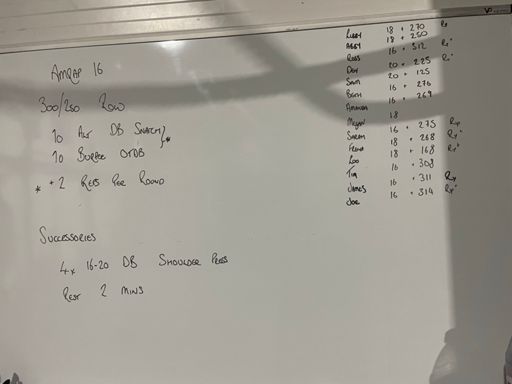 AMRAP 16
300/250 Row
10 ALT DB SNATCH}*
10 BURPEE OTDB
* +2 REPS PER ROUND
SUCCESSORIES
4x 16-20 DB SHOULDER PRESS
REST 2 MINS
18 + 270 Rx
LIBBY 18 + 250
AGGY 16 + 312 Rx+
ROSS 20 + 225 Rx+
DOM 20 + 125
SAM 16 + 276
BETH 16 + 269
AMANDA
MEGAN 18
SARAH 16 + 275 Rx
18 + 268 Rx+
LOO 18 + 168 Rx+
TIM 16 + 308
JAMES 16 + 311 Rx
JOE 16 + 314 Rx+